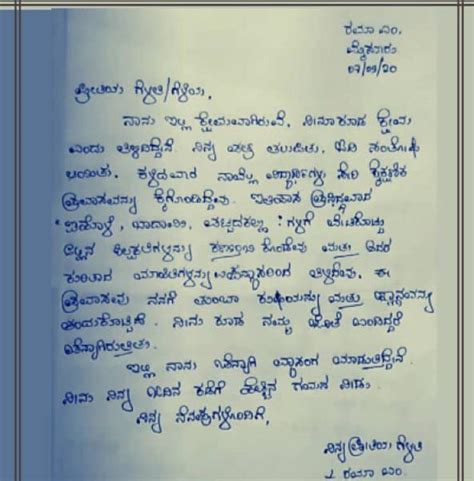 ರಮಾ ಎಂ.
ಮೈಸೂರು
07/09/20
ಪ್ರೀತಿಯ ಗೆಳತಿ/ಗೆಳೆಯ,
ನಾನು ಇಲ್ಲಿ ಕ್ಷೇಮವಾಗಿರುವೆ, ನೀನು ಕೂಡ ಕ್ಷೇಮ
ಎಂದು ತಿಳಿದಿದ್ದೇನೆ. ನಿನ್ನ ಪತ್ರ ತಲುಪಿತು, ಓದಿ ಸಂತೋಷ
ಆಯಿತು. ಕಳೆದವಾರ ನಾವೆಲ್ಲ ವಿದ್ಯಾರ್ಥಿಗಳು ಸೇರಿ ಶೈಕ್ಷಣಿಕ
ಪ್ರವಾಸವನ್ನು ಕೈಗೊಂಡಿದ್ದೆವು. ಇತಿಹಾಸ ಪ್ರಸಿದ್ಧವಾದ
ಐಹೊಳೆ, ಬಾದಾಮಿ, ಪಟ್ಟದಕಲ್ಲು ಗಳಿಗೆ ಭೇಟಿಕೊಟ್ಟು
ಅಲ್ಲಿನ ಶಿಲ್ಪಕಲೆಗಳನ್ನು ಕಂಡೆವು ಮತ್ತು ಅದರ
ಕುರಿತಾದ ಮಾಹಿತಿಗಳನ್ನು ತಿಳಿದೆವು. ಈ
ಪ್ರವಾಸವು ನನಗೆ ತುಂಬಾ ಖುಷಿಯನ್ನು ಮತ್ತು ಜ್ಞಾನವನ್ನು
ತಂದುಕೊಟ್ಟಿದೆ. ನೀನು ಕೂಡ ನಮ್ಮ ಜೊತೆ ಬಂದಿದ್ದರೆ
ಚೆನ್ನಾಗಿರುತ್ತಿತ್ತು.
ಇಲ್ಲಿ ನಾನು ಚೆನ್ನಾಗಿ ವ್ಯಾಸಂಗ ಮಾಡುತ್ತಿದ್ದೇನೆ.
ನೀನು ನಿನ್ನ ಓದಿನ ಕಡೆಗೆ ಹೆಚ್ಚಿನ ಗಮನ ನೀಡು.
ನಿನ್ನ ನೆನಪುಗಳೊಂದಿಗೆ,
ನಿನ್ನ ಪ್ರೀತಿಯ ಗೆಳತಿ
ರಮಾ ಎಂ.